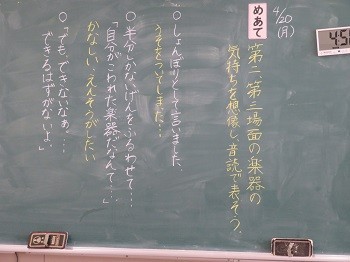 4/20
(月)
めあて
第二、第三場面の楽器の
気持ちを想像し、音読で表そう。
○しょんぼりとして言いました。
うそをついてしまった…
○半分しかないげんをふるわせて…
「自分がこわれた楽器だなんて…。」
かなしい、えんそうがしたい
○「でも、できないなぁ…。
できるはずがないよ。」